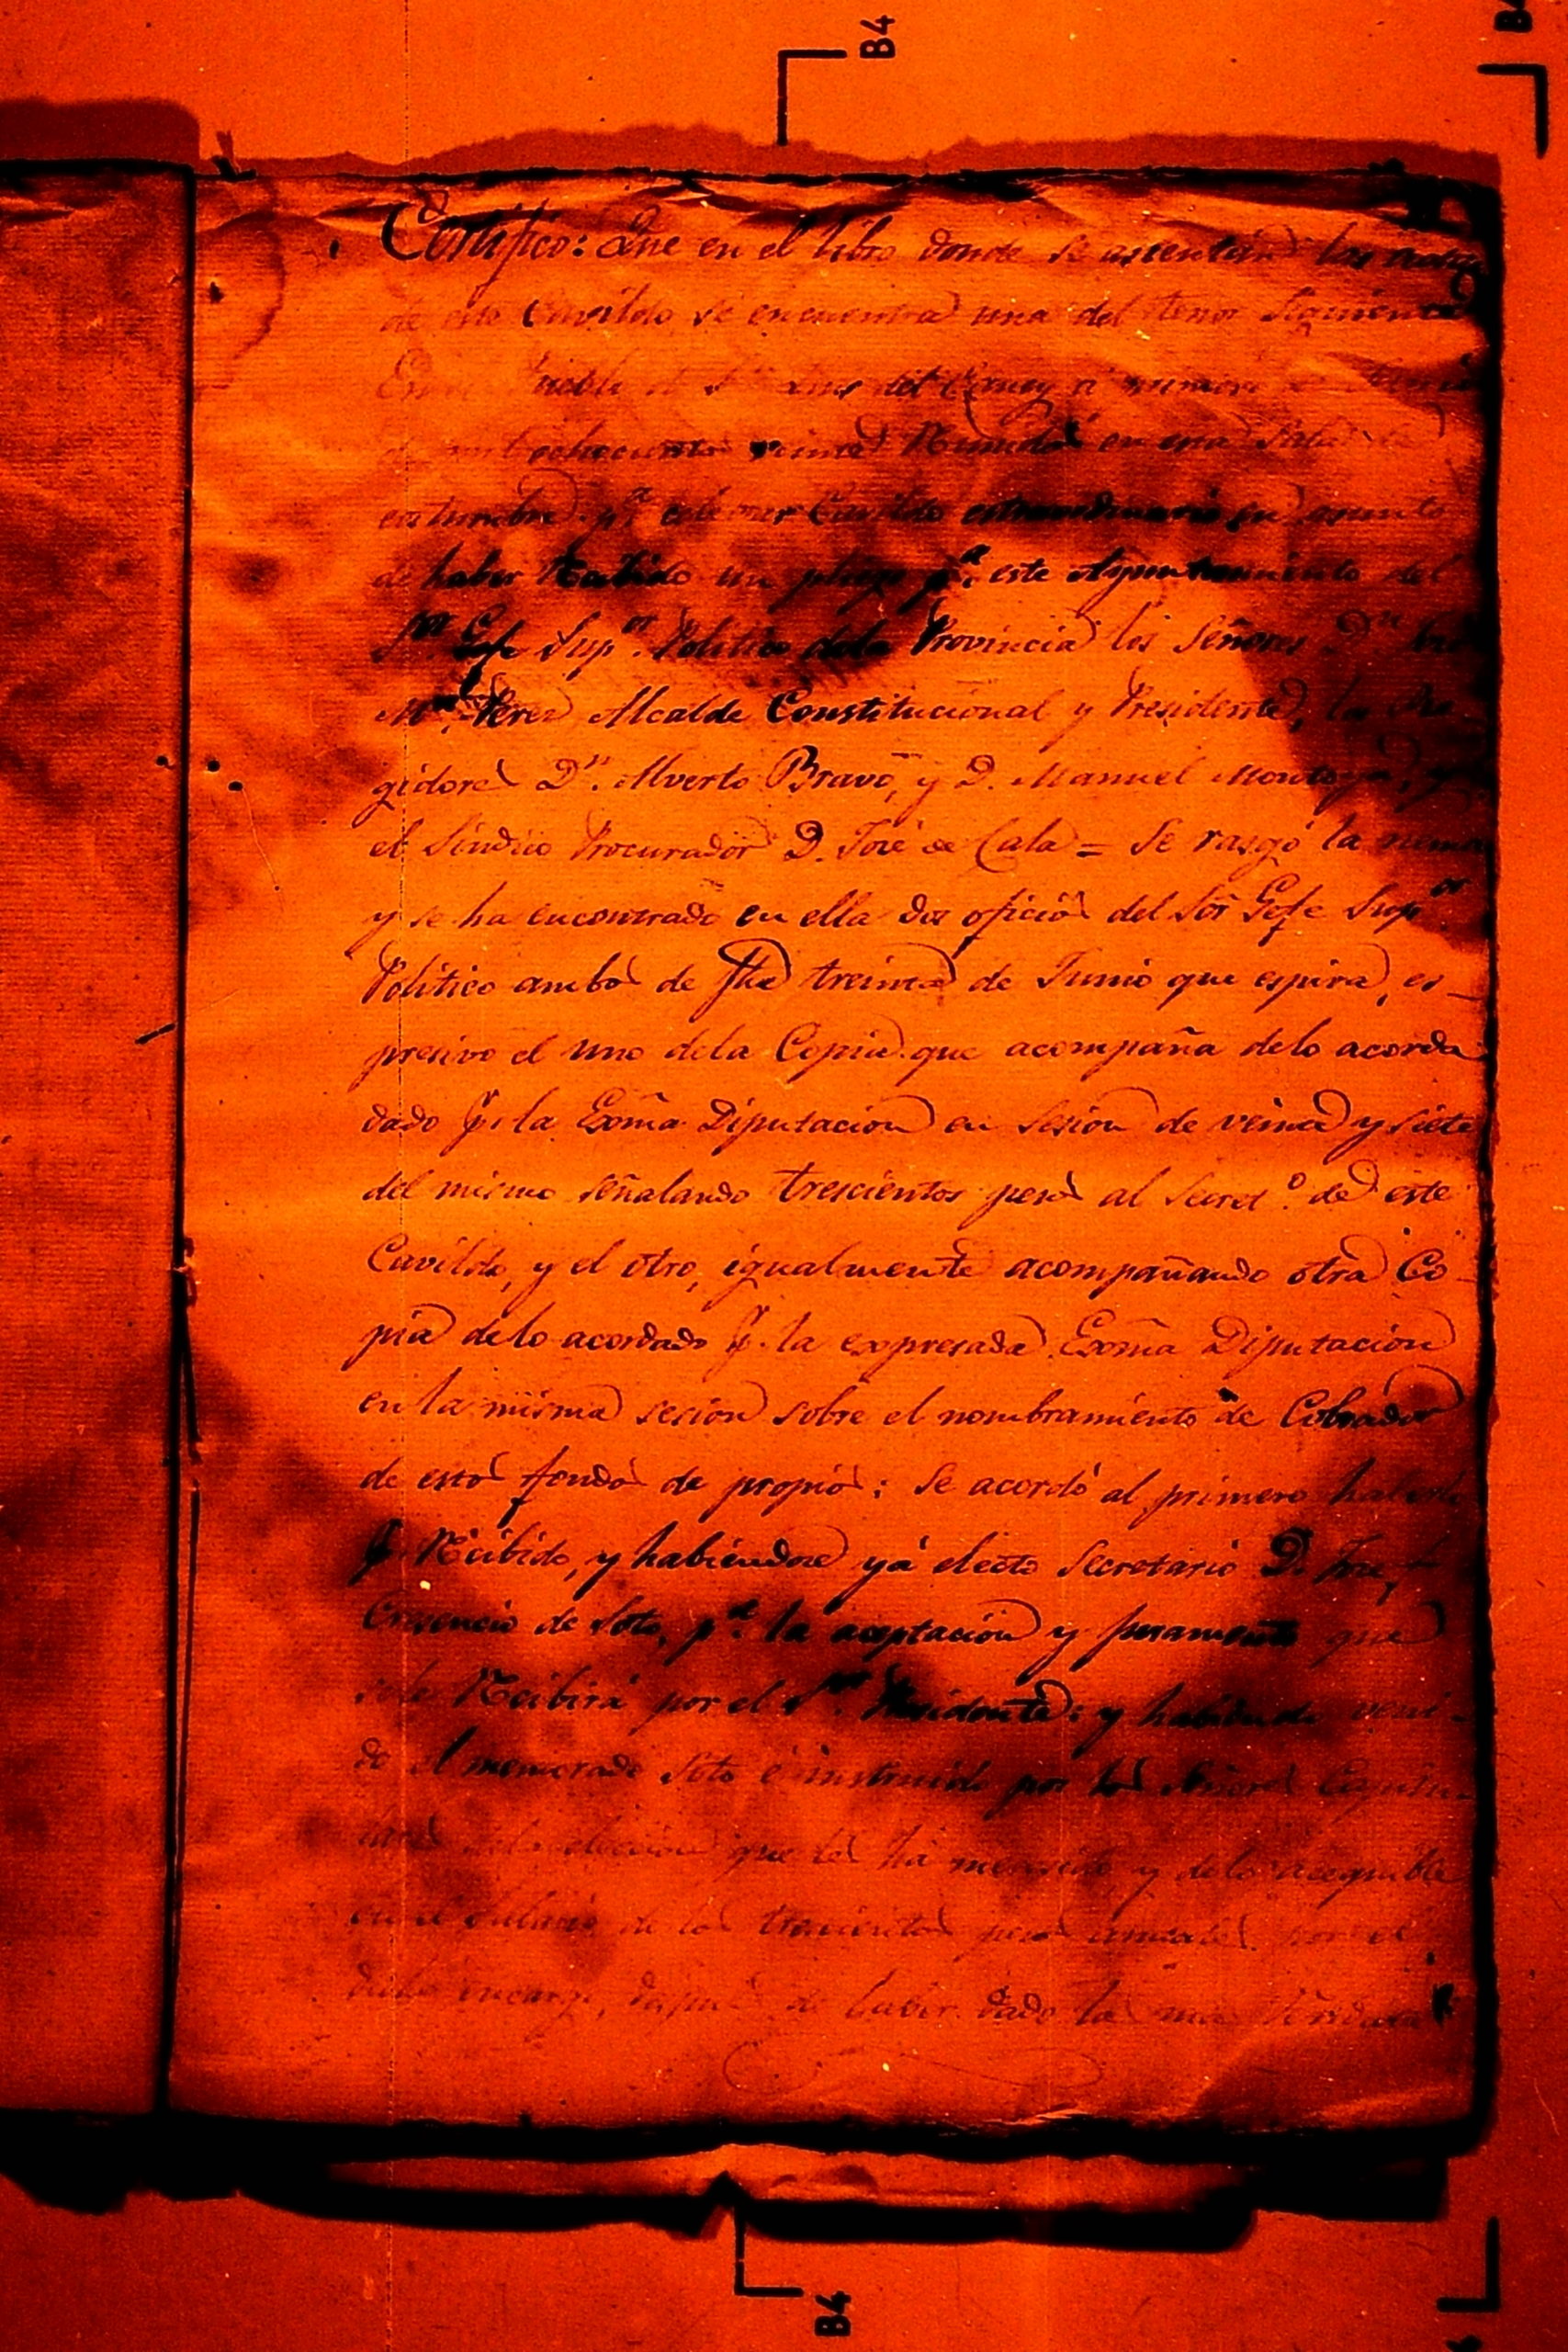 B4
Certifico: Que en el libro donde se asientan las
de este Cavildo, se encuentra una del tenor siguiente
Pueblo de Sn Luis del Caney a primero de
mil ochocientos veinte Reunidos en esta Sala de
costumbre pa. celebrar Cavildo extraordinario en asunto
de haber Recibido un pliego pa. este Ayuntamiento del
Sor. Gefe Supor. Politico dela Provincia los Señores Dn
Ml. Perez Alcalde Constitucional y Presidente, los Re
gidores Dn. Alverto Bravo, y D. Manuel Montoya, y
el Sindico Procurador D. José de Cala = Se rasgó la nema
y se ha encontrado en ella dos oficios del Sor Gefe Supor
Politico ambos de fha treinta de Junio que espira, es-
presivo el uno dela Copia que acompaña delo acorda
dado p. la Exma Diputacion en sesion de veinte y siete
del mismo señalando trescientos pesos al Secreto. de este
Cavildo, y el otro, igualmente acompañando otra Co-
pia delo acordado p. la expresada Exma Diputacion
en la misma sesion sobre el nombramiento de Cobrador
de estos fondos de propios: Se acordó al primero haberlo
p. Recibido, y habiendose yá electo Secretario D. José
Cresencio de Soto, pa. la aceptacion y juramento que
se le Recibirá por el Sor. Presidente: y habiendo veni-
do el memorado Soto é instruido por los Señores Capitu
lares dela eleccion que les ha merecido y delo asequible
en el salario de los trescientos pesos anuales por el
dicho encargo, despues de haber dado las mas
B4